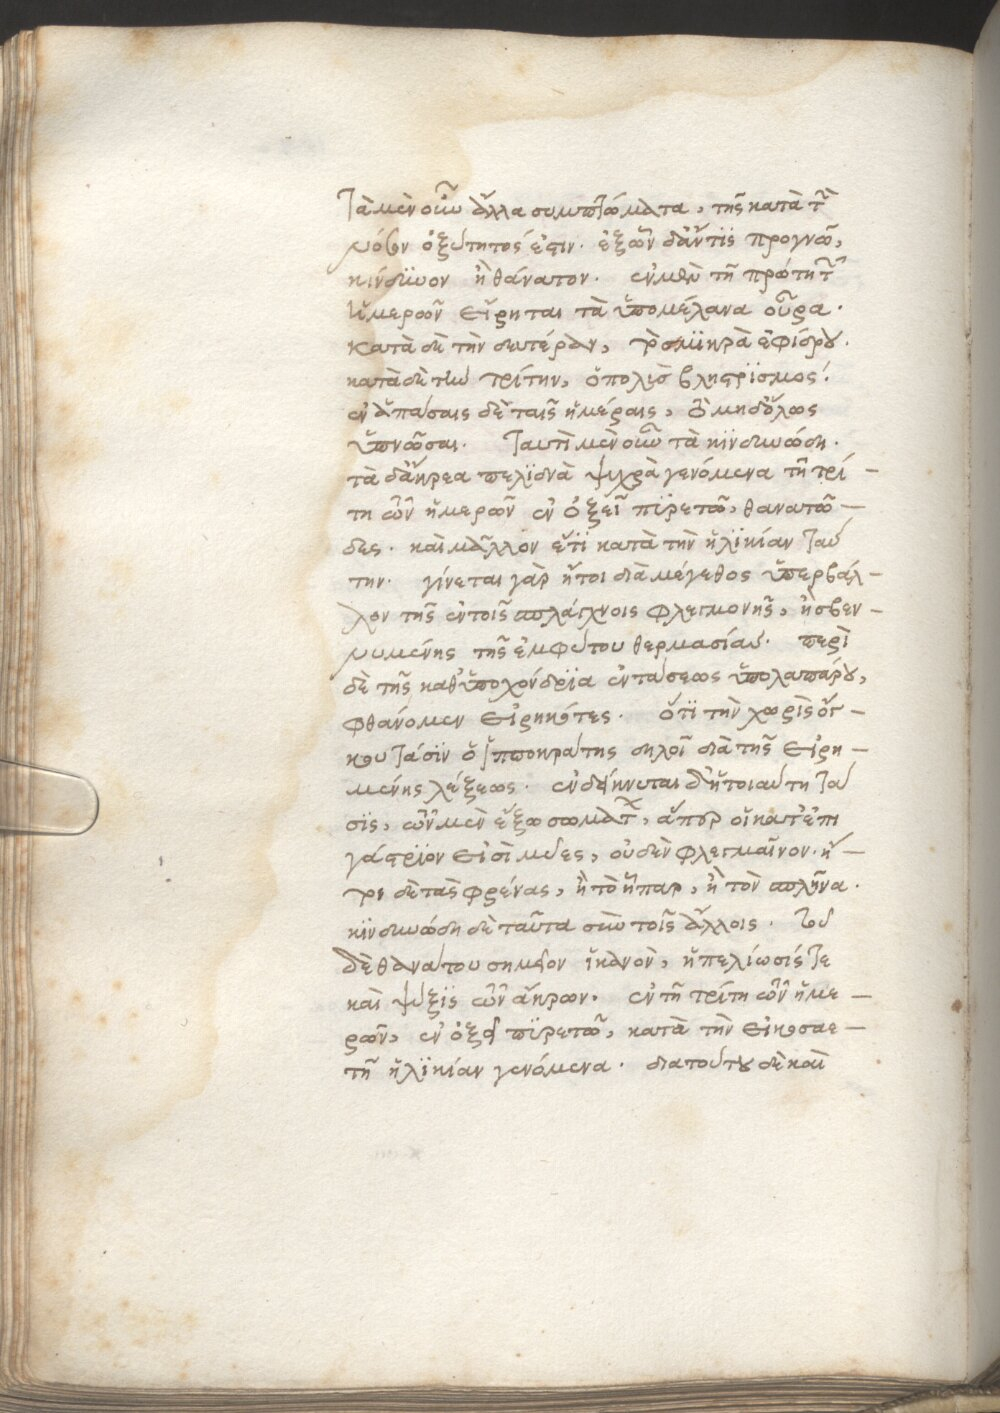 Τὰ μὲν οὖν ἄλλα συμπτώματα, τῆς κατὰ τὴν
νόσον ὀξύτητός ἐστιν. ἐξ ὧν δ' ἄν τις προγνῶ,
κίνδυνον ἢ θάνατον. ἐν μὲν τῇ πρώτῃ τῶν
ἡμερῶν εἴρηται τὰ ὑπομέλανα οὖρα.
κατὰ δὲ τὴν δευτέραν, τὸ σμικρὰ ἐφιδροῦν.
κατὰ δὲ τὴν τρίτην, ὁ πολὺς βληστρισμός.
ἐν ἁπάσαις δὲ ταῖς ἡμέραις, τὸ μηδόλως
ὑπνῶσαι. ταυτὶ μὲν οὖν τὰ κινδυνώδη.
τὰ δ' ἄκρεα πελιδνὰ ψυχρὰ γενόμενα τῇ τρί-
τῃ τῶν ἡμερῶν ἐν ὀξεῖ πυρετῷ, θανατώ-
δες. καὶ μᾶλλον ἔτι κατὰ τὴν ἡλικίαν ταύ
την. γίνεται γὰρ ἤτοι διὰ μέγεθος ὑπερβάλ-
λον τῆς ἐν τοῖς σπλάγχνοις φλεγμονῆς, ἢ σβεν-
νυμένης τῆς ἐμφύτου θερμασίας. περὶ
δὲ τῆς καθ' ὑποχόνδρια ἐντάσεως ὑπολαπάρου,
φθάνομεν εἰρηκότες. ὅτι τὴν χωρὶς ὄγ-
κου τάσιν ὁ ἱπποκράτης δηλοῖ διὰ τῆς εἰρη-
μένης λέξεως. ἐνδείκνυται δ' ἡ τοιαύτη τά
σις, τῶν μὲν ἔξω σωμάτων, ἅπερ οἱ κατ' ἐπι
γάστριον εἰσὶ μύες, οὐδὲν φλεγμαῖνον. ἤ-
τοι δὲ τὰς φρένας, ἢ τὸ ἧπαρ, ἢ τὸν σπλῆνα.
κινδυνώδη δὲ ταῦτα σὺν τοῖς ἄλλοις. τοῦ
δὲ θανάτου σημεῖον ἱκανὸν, ἡ πελίωσίς τε
καὶ ψύξις τῶν ἄκρων. ἐν τῇ τρίτῃ τῶν ἡμε-
ρῶν, ἐν ὀξεῖ πυρετῷ, κατὰ τὴν εἰκοσαε-
τῆ ἡλικίαν γενόμενα. διατούτου δὲ καὶ